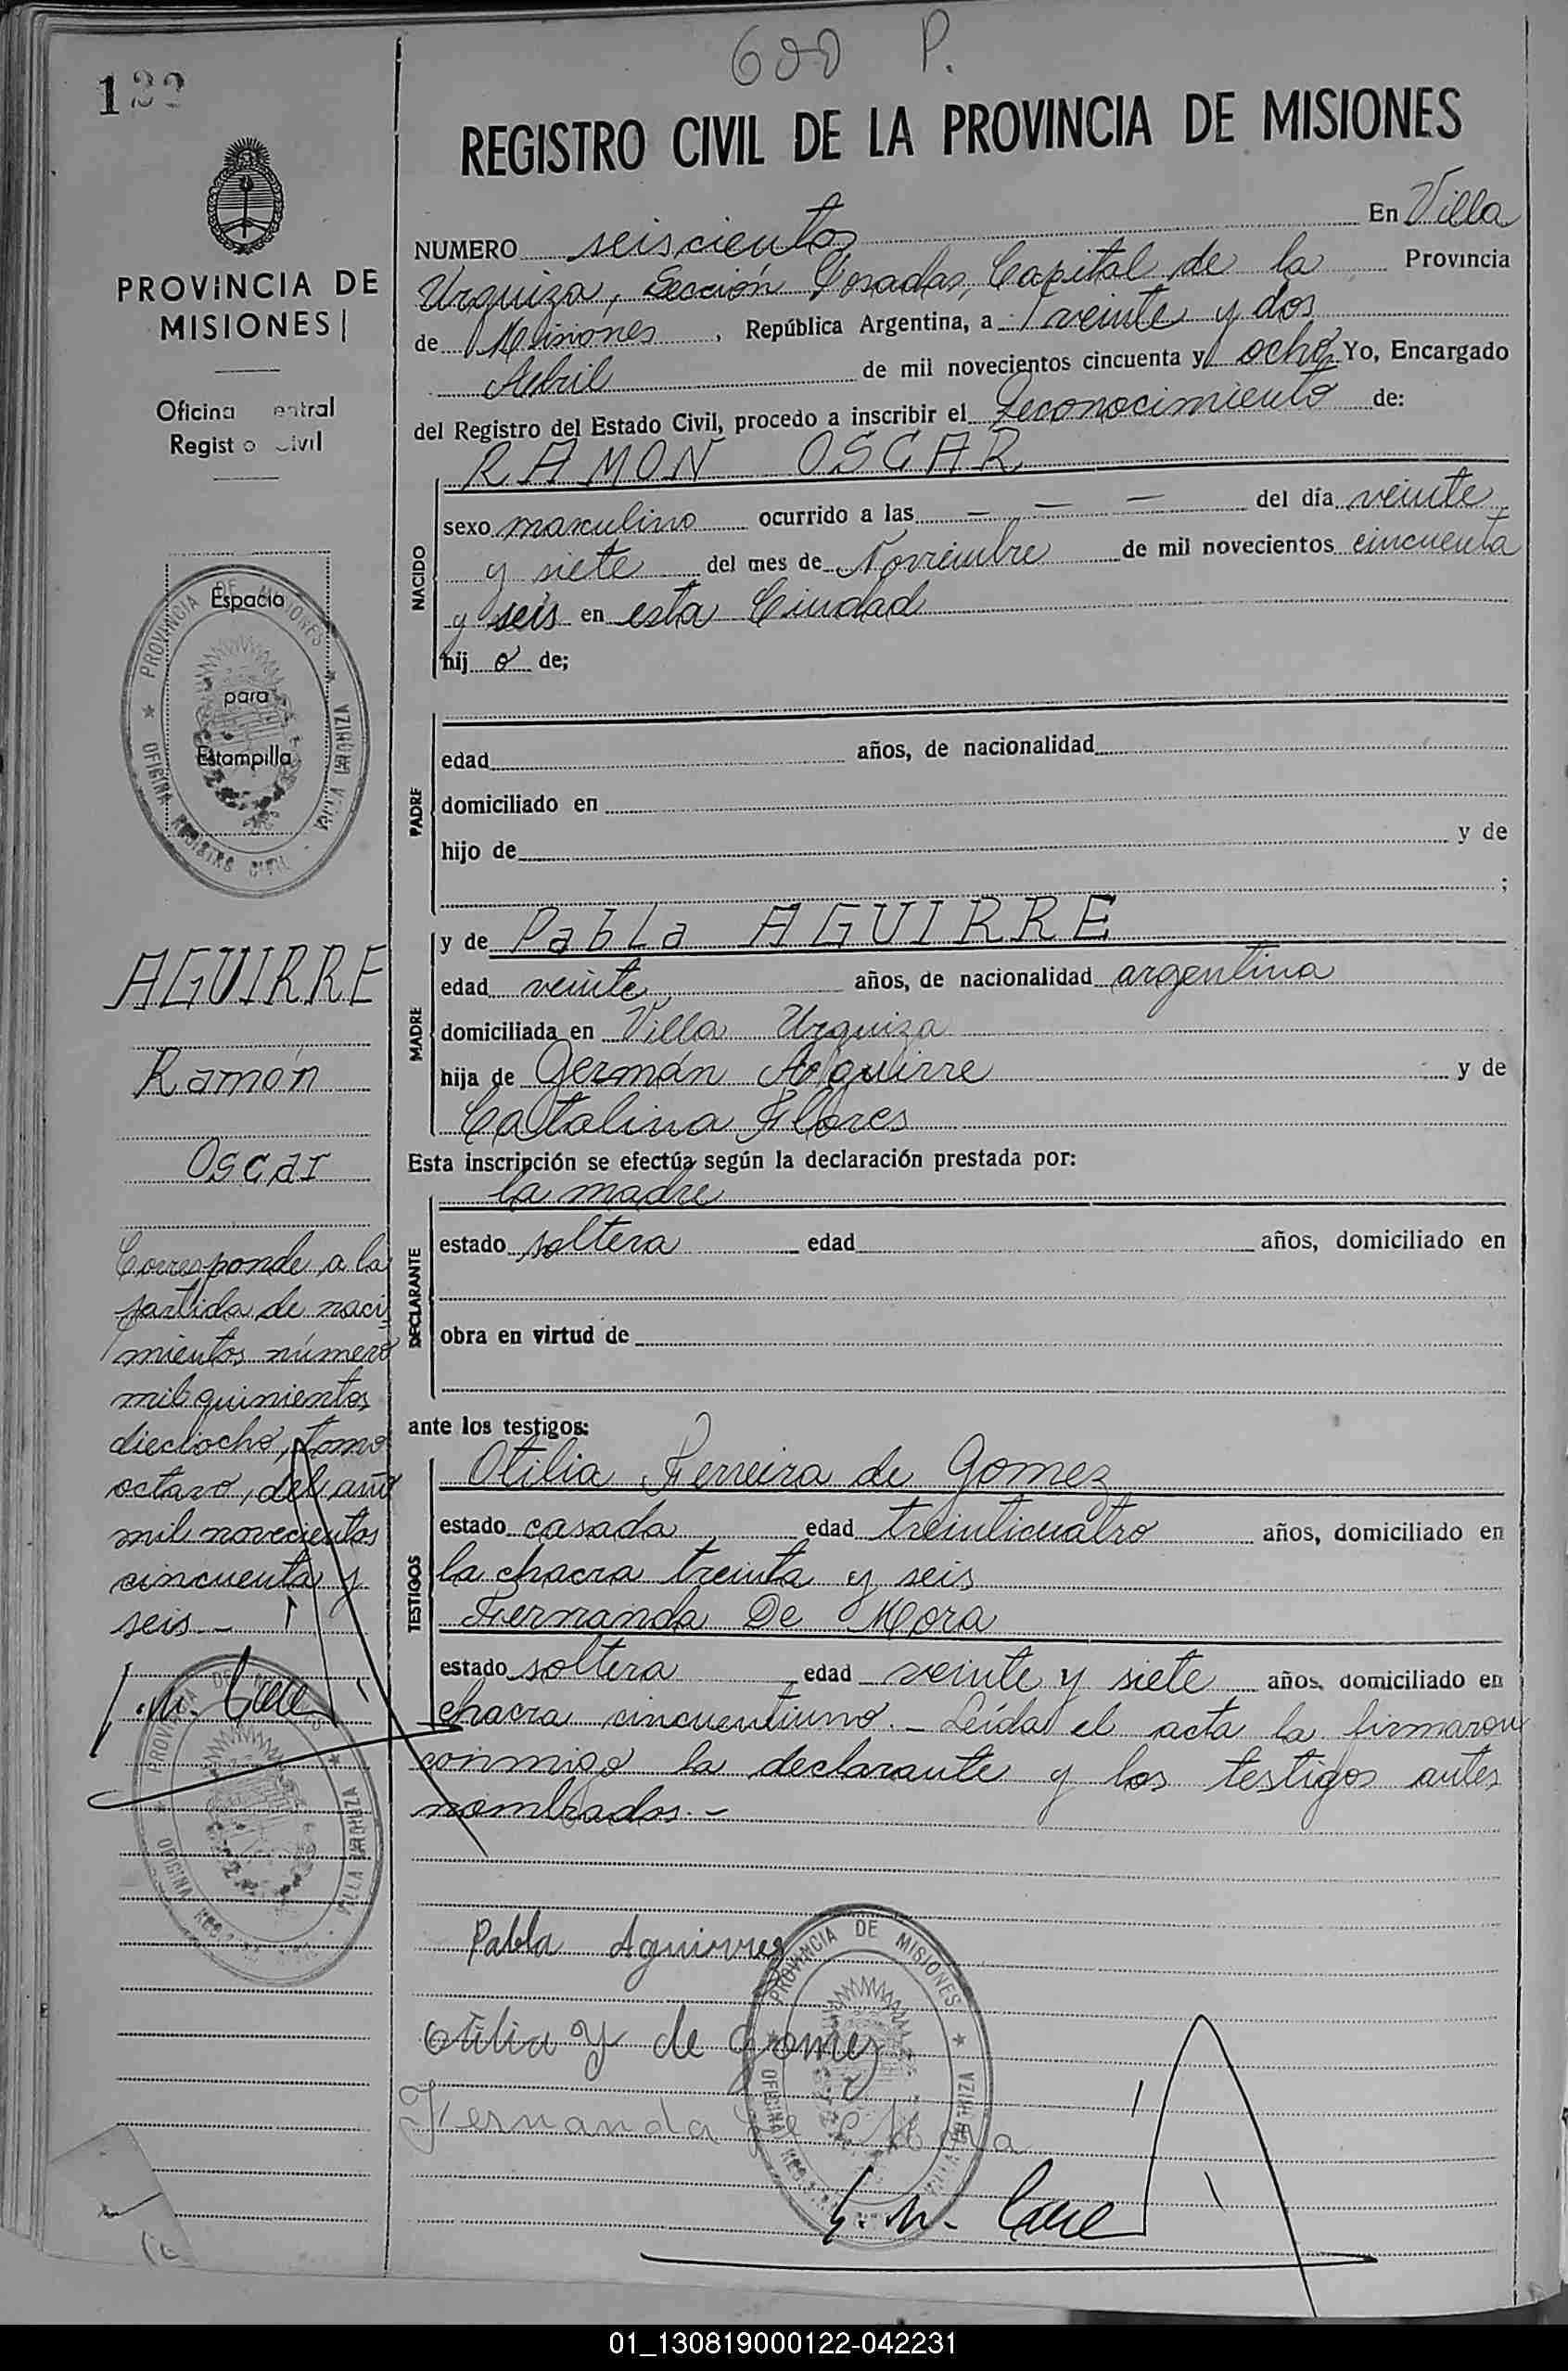 600 P.
122
REGISTRO CIVIL DE LA PROVINCIA DE MISIONES
PROVINCIA DE
MISIONES
Oficina entral
Regist o Civil
Espacio
para
Estampilla
PROVINCIA DE MISIONES
OFICINA REGISTRO CIVIL - VILLA URQUIZA
AGUIRRE
Ramón
Oscar
Corresponde a la
partida de naci
mientos número
mil quinientos
dieciocho, tomo
octavo, del año
mil novecientos
cincuenta y
seis.-
NUMERO seiscientos En Villa
Urquiza, Sección Posadas, Capital de la Provincia
de Misiones, República Argentina, a veinte y dos
Abril de mil novecientos cincuenta y ocho Yo, Encargado
del Registro del Estado Civil, procedo a inscribir el Reconocimiento de:
NACIDO
RAMON OSCAR
sexo masculino ocurrido a las — — — del día veinte
y siete del mes de Noviembre de mil novecientos cincuenta
y seis en esta Ciudad
hij o de;
PADRE
edad años, de nacionalidad
domiciliado en
hijo de y de
;
MADRE
y de Pabla AGUIRRE
edad veinte años, de nacionalidad argentina
domiciliada en Villa Urquiza
hija de Germán Aguirre y de
Catalina Flores
Esta inscripción se efectúa según la declaración prestada por:
DECLARANTE
la madre
estado soltera edad años, domiciliado en
obra en virtud de
ante los testigos:
TESTIGOS
Otilia Ferreira de Gomez
estado casada edad treinticuatro años, domiciliado en
la chacra treinta y seis
Fernanda De Mora
estado soltera edad veinte y siete años, domiciliado en
chacra cincuentiuno.- Leída el acta la firmaron
conmigo la declarante y los testigos antes
nombrados.-
Pabla Aguirre
Otilia F de Gomez
Fernanda De Mora
PROVINCIA DE MISIONES
OFICINA REG. VILLA URQUIZA
01_130819000122-042231